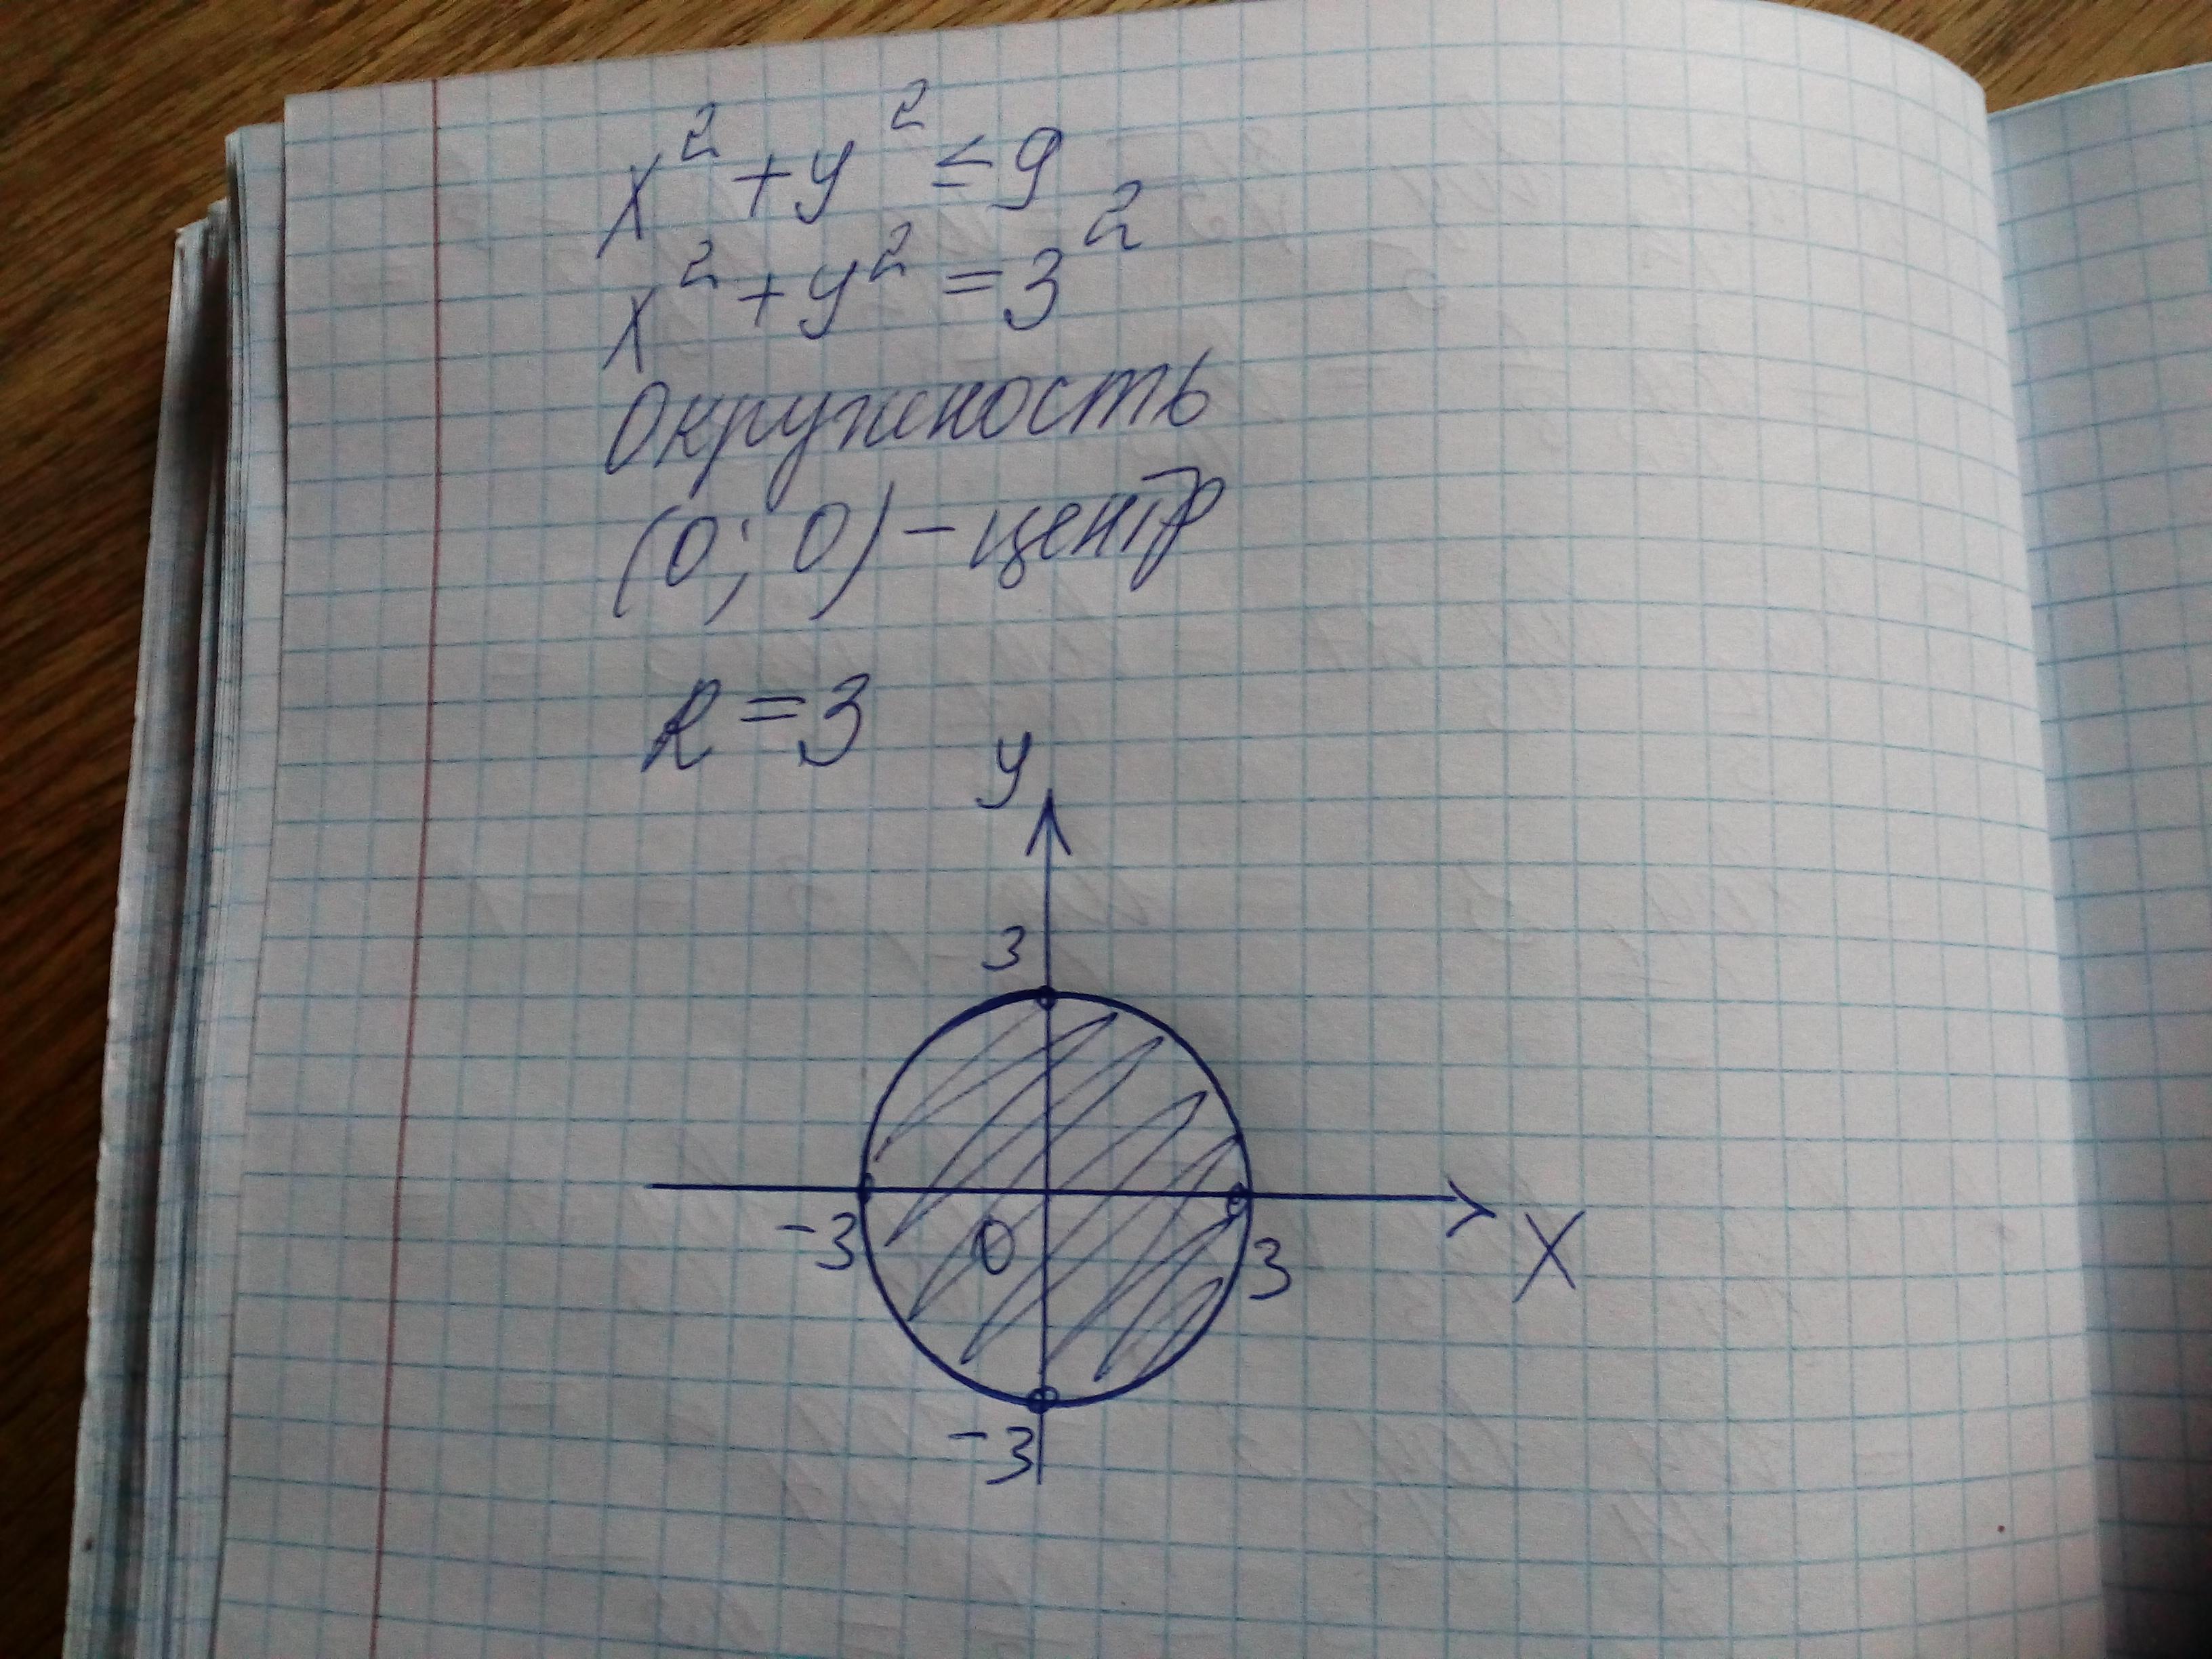 x² + y² ≤ 9
x² + y² = 3²
Окружность
(0; 0) – центр
R = 3
y
3
-3
0
3
X
-3